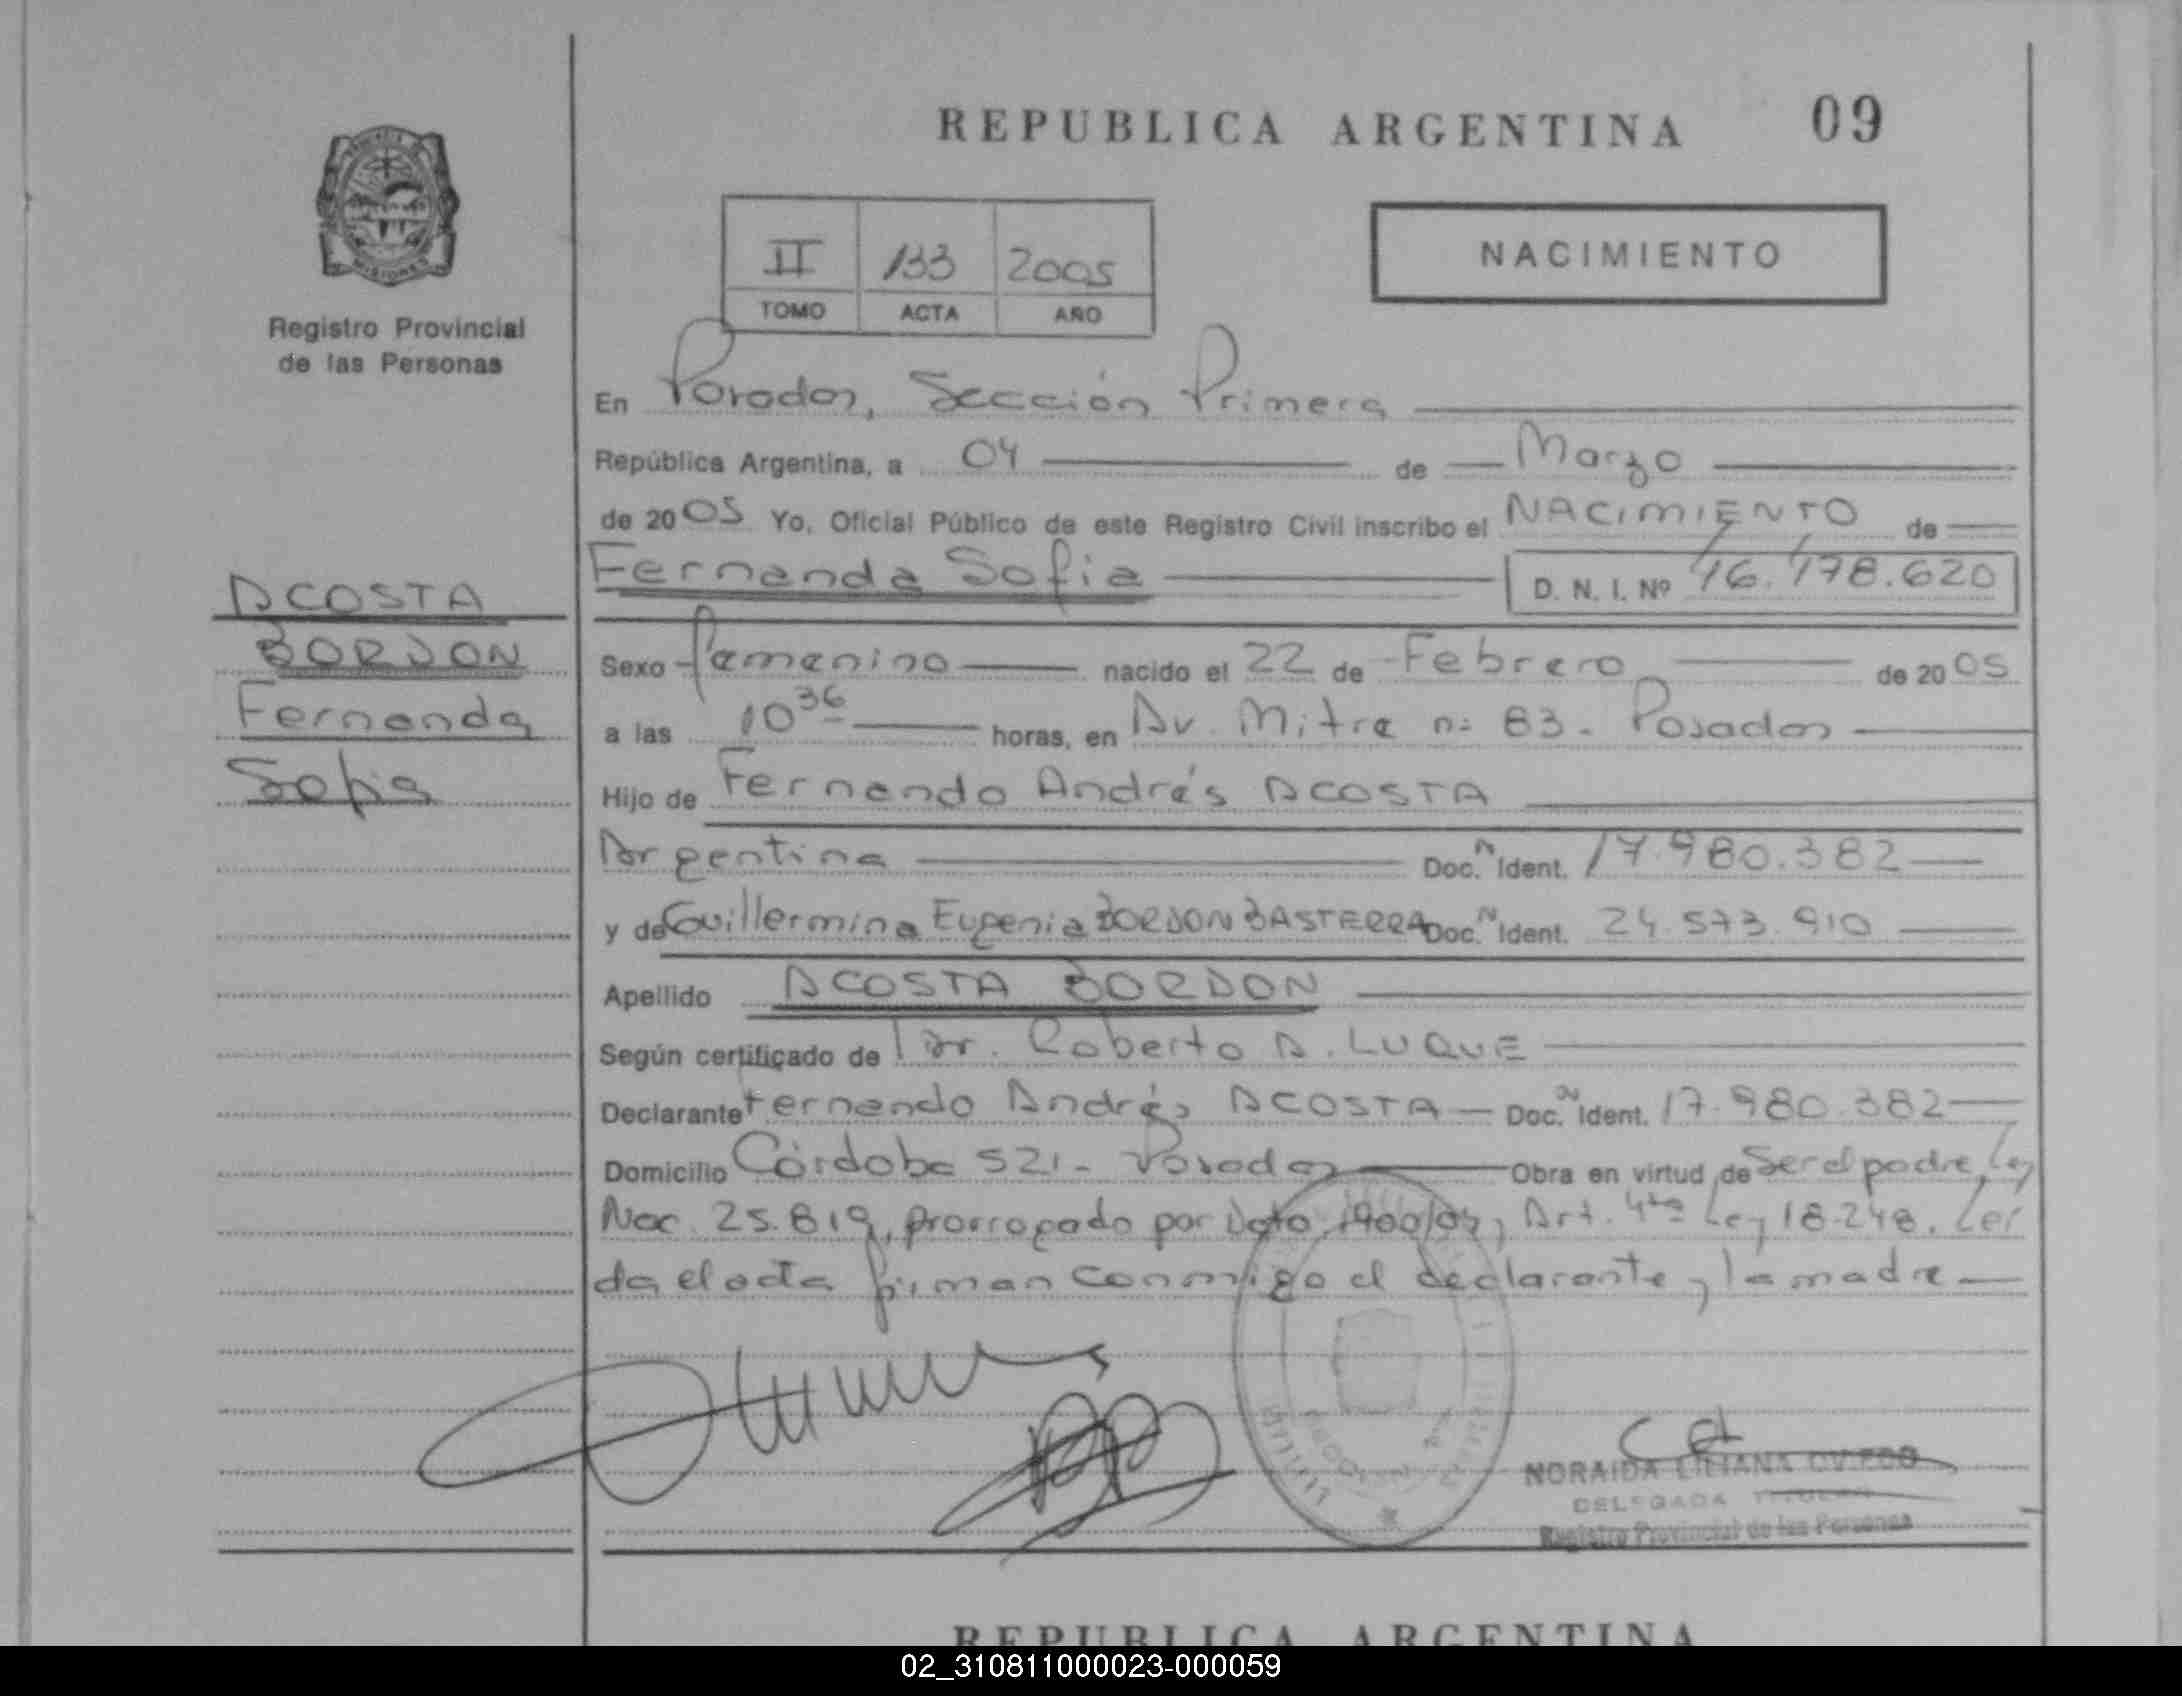 REPUBLICA ARGENTINA 09
PROVINCIA
MISIONES
Registro Provincial
de las Personas
II 133 2005
TOMO ACTA AÑO
NACIMIENTO
En Posadas, Sección Primera
República Argentina, a 04 de Marzo
de 2005 Yo, Oficial Público de este Registro Civil inscribo el NACIMIENTO de
Fernanda Sofia D. N. I. Nº 46.178.620
ACOSTA
BORDON
Fernanda
Sofia
Sexo femenino nacido el 22 de Febrero de 2005
a las 10 36 horas, en Av. Mitre n: 83 - Posadas
Hijo de Fernando Andrés ACOSTA
Argentina Doc. N Ident. 17.980.382
y de Guillermina Eugenia BORDON BASTERRA Doc. N Ident. 24.573.910
Apellido ACOSTA BORDON
Según certificado de Dr. Roberto A. LUQUE
Declarante Fernando Andrés ACOSTA Doc. N Ident. 17.980.382
Domicilio Córdoba 521 - Posadas Obra en virtud de Ser el padre, Ley
Nac. 25.819, prorrogado por Dcto. 1900/04, Art. 4to Ley 18.248. Lei
da el acta firman conmigo el declarante y la madre
NORAIDA LILIANA OVIEDO
DELEGADA TITULAR
Registro Provincial de las Personas
REPUBLICA ARGENTINA
02_310811000023-000059